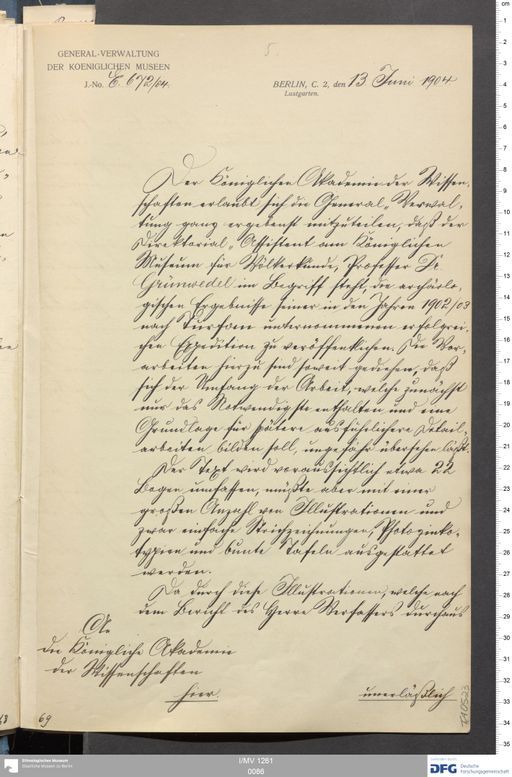 5.
GENERAL-VERWALTUNG
DER KOENIGLICHEN MUSEEN
J.-No. E. 672/04.
BERLIN, C. 2, den 13 Juni 1904
Lustgarten.
Der Königlichen Akademie der Wissen-
schaften erlaubt sich die General-Verwal-
tung ganz ergebenst mitzuteilen, daß der
Direktorial-Assistent am Königlichen
Museum für Völkerkunde, Professor Dr.
Grünwedel im Begriff steht, die archäolo-
gischen Ergebnisse seiner in den Jahren 1902/03
nach Turfan unternommenen erfolgrei-
chen Expedition zu veröffentlichen. Die Vor-
arbeiten hierzu sind soweit gediehen, daß
sich der Umfang der Arbeit, welche zunächst
nur das Notwendigste enthalten und eine
Grundlage für spätere ausführlichere Detail-
arbeiten bilden soll, ungefähr übersehen läßt.
Der Text wird voraussichtlich etwa 22
Bogen umfassen, müßte aber mit einer
großen Anzahl von Illustrationen und
zwar einfache Strichzeichnungen, Photozinko-
typien und bunte Tafeln ausgestattet
werden.
Da durch diese Illustrationen, welche nach
dem Bericht des Herrn Verfassers durchaus
An
die Königliche Akademie
der Wissenschaften
hier.
unerläßlich
69
TA 0523
I/MV 1261
0086
Ethnologisches Museum
Staatliche Museen zu Berlin
DFG Deutsche
Forschungsgemeinschaft